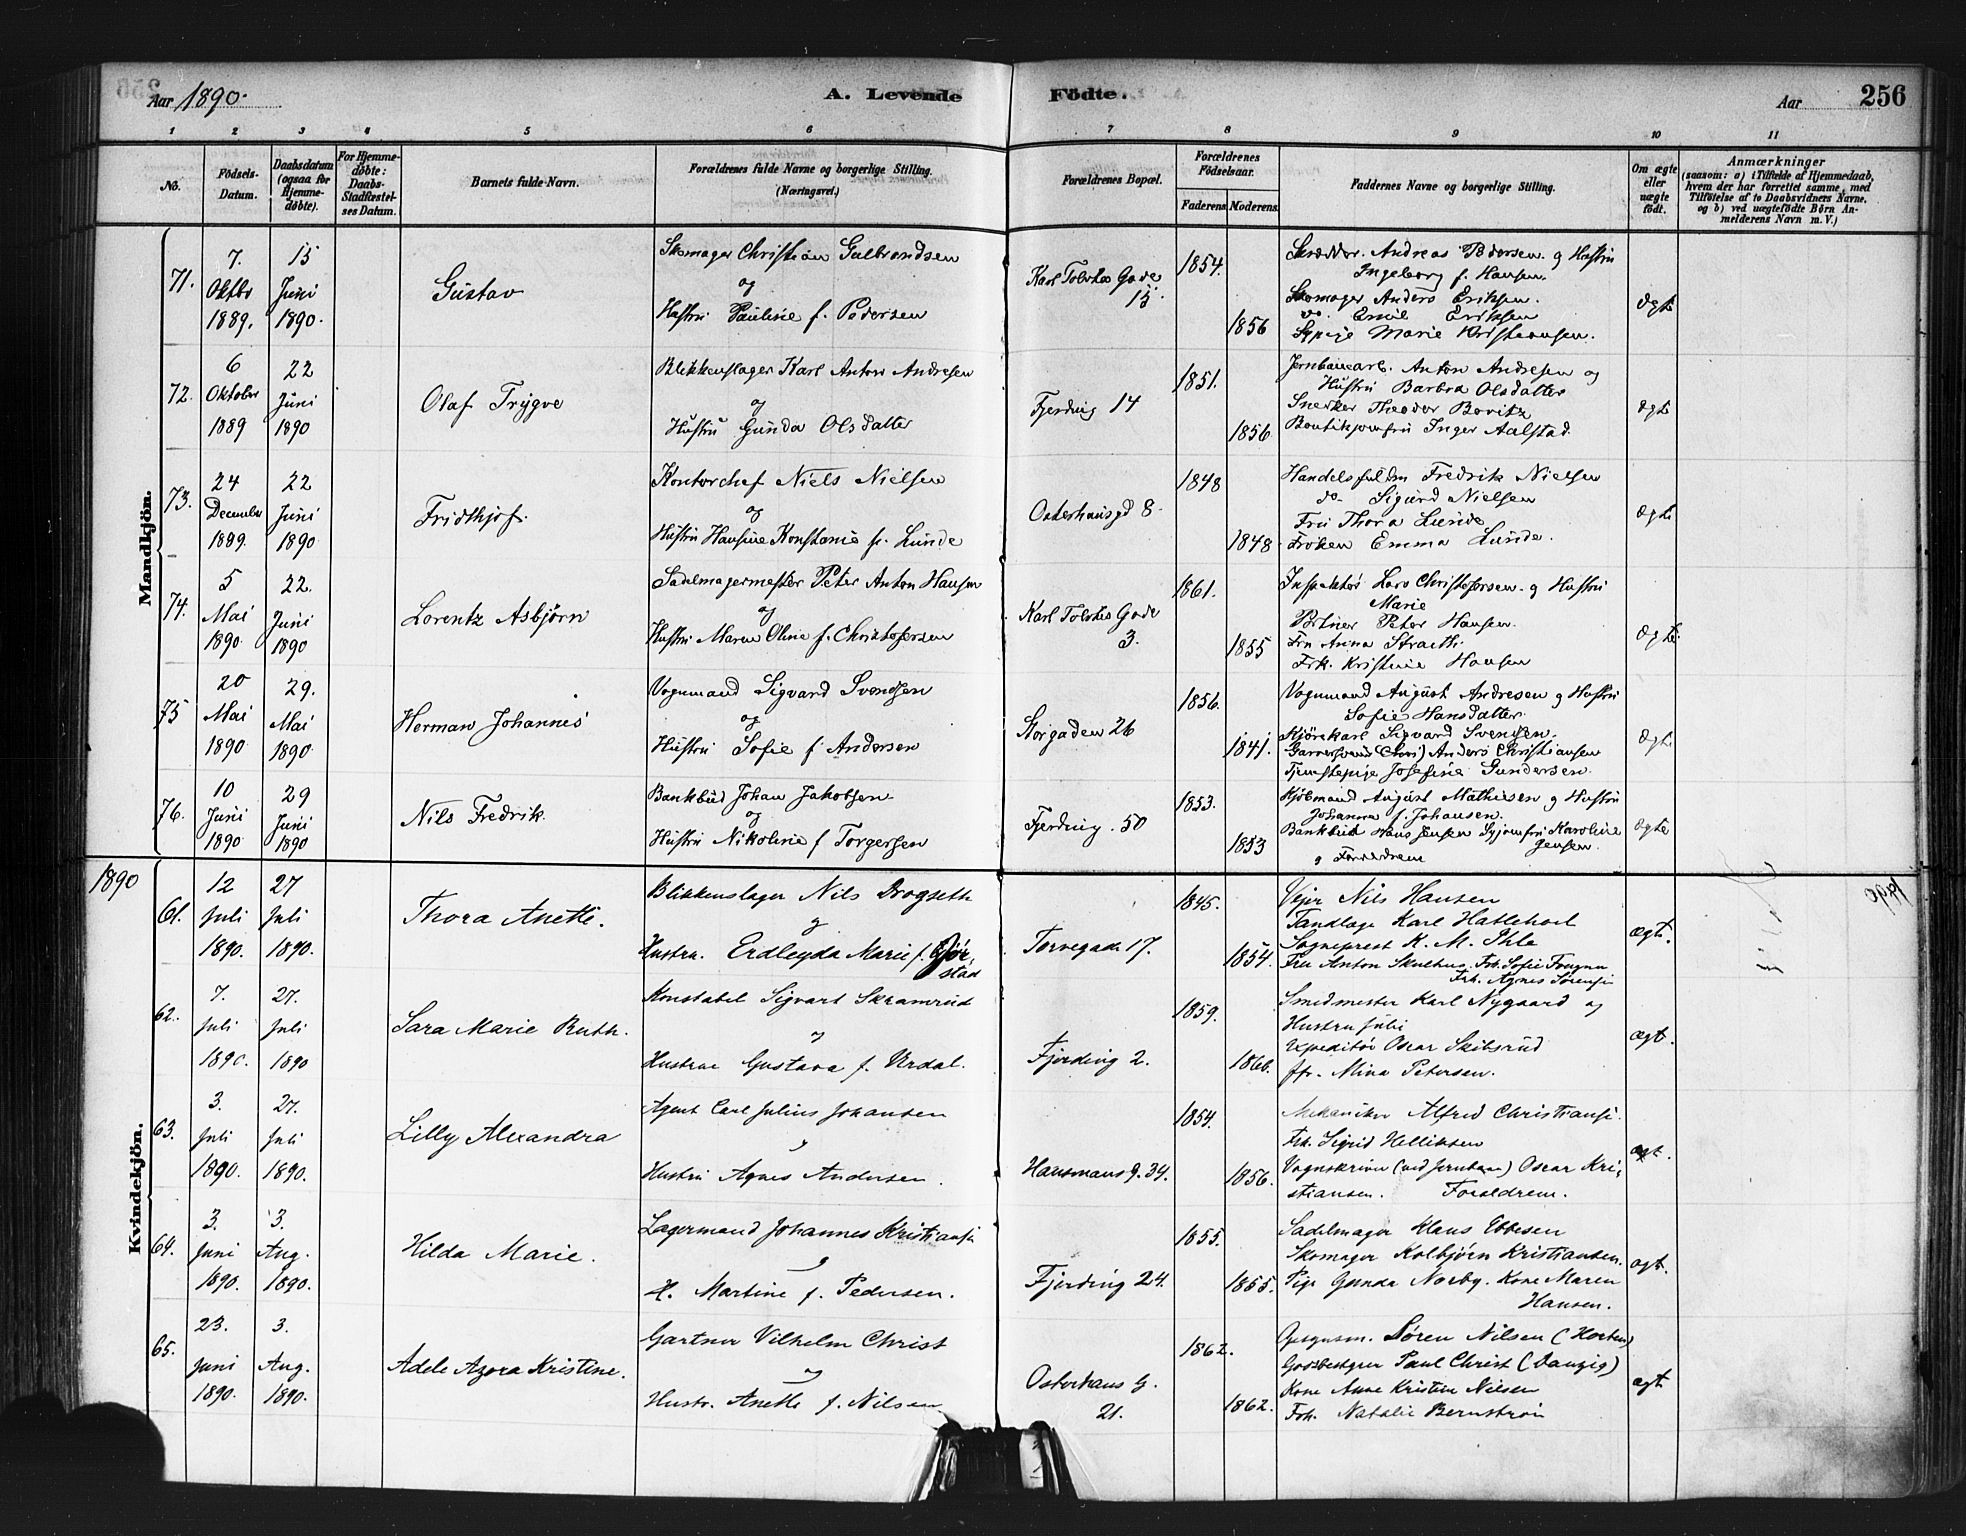 Aar 1890.
A. Levende Födte.
Aar
256
1 2 3 4 5 6 7 8 9 10 11
No.
Födsels-Datum.
Daabsdatum (ogsaa for Hjemme-döbte).
For Hjemme-döbte: Daabs-Stadfæstel-ses Datum.
Barnets fulde Navn.
Forældrenes fulde Navne og borgerlige Stilling.
(Næringsvei.)
Forældrenes Bopæl.
Forældrenes Födselsaar.
Faderens Moderens
Faddernes Navne og borgerlige Stilling.
Om ægte eller uægte födt.
Anmærkninger
(saasom: a) i Tilfælde af Hjemmedaab, hvem der har forrettet samme, med Tilföielse af to Daabsvidners Navne, og b) ved uægtefödte Börn An-melderens Navn m. V.)
Mandkjön.
71.
7. Oktbr 1889.
15 Juni 1890.
Gustav
Skomager Christian Gulbrandsen
og
Hustru Pauline f. Pedersen
Karl Gade 15.
1854.
1856
Skrædder. Andreas Pedersen og Hustru
Ingeborg f. Hansen.
Skomager Anders Eriksen.
do. Emil Eriksen
Sypige Marie Kristiansen.
ægte
72.
6 Oktober 1889
22 Juni 1890
Olaf Trygve
Blikkenslager Karl Anton Andresen
og
Hustru Gunda Olsdatter
Fjerding 14
1851.
1856
Jernbanearb. Anton Andresen og
Hustru Barbra Olsdatter
Snedker Theodor
Inger Aalstad.
ægte
73.
24 December 1899.
22 Juni 1890
Fridthjof.
Kontorchef Niels Nielsen
og
Hustru Hansine Konstanse f. Lunde
Osterhausgd 8.
1848
1848
Fredrik Nielsen
do. Sigurd Nielsen
Fru Thora Lunde
Frøken Emma Lunde.
ægte
74.
5 Mai 1890
22. Juni 1890
Lorentz Asbjørn
Sadelmagermester Peter Anton Hansen
og
Hustru Maren Oline f. Christofersen
Karl Gade
3.
1861.
1855
Inspektør Lars Christofersen og Hustru
Marie
Portner Peter Hansen.
Fru Anna
Frk. Kristine Hansen
ægte
75
20 Mai 1890
29. Mai 1890
Herman Johannes
Vognmand Sigvard Svendsen
og
Hustru Sofie f. Andersen
Storgaden 26
1856.
1841.
Vognmand August Andresen og Hustru
Sofie Hansdatter.
Kjørekarl Sigvard Svendsen.
Anders Christiansen
Tjenstepige Josefine Gundersen.
ægte
76.
10 Juni 1890
29 Juni 1890
Nils Fredrik.
Bankbud Johan Jakobsen
og
Hustru Nikoline f Torgersen
Fjerding. 50
1853.
1853
Kjøbmand August Mathisen og Hustru
Johanna f. Johansen.
Bankbud Hans Jensen Syjomfru Karoline
Jensen.
og Forældrene
ægte
1890
Kvindekjön.
61.
12 Juli 1890.
27 Juli 1890.
Thora Anette.
Blikkenslager Nils Drogseth
og
Hustru. Erdleyda Marie f.
stad
Torvegade 17.
1845.
1854.
Vejer Nils Hansen
Tandlæge Karl Hatlehoel
Sogneprest K. M. Ihle
Fru Anton Frk. Sofie Fougner
Frk. Agnes Sørensen
ægt.
62.
7. Juli 1890.
27. Juli 1890
Sara Marie Ruth.
Konstabel Sigvart Skramrud
og
Hustru Gustava f. Urdal.
Fjerding 2.
1859.
1860.
Smedmester Karl Nygaard og
Hustru Juli
Expeditør Oscar Skibsrud
Mina Petersen.
ægt.
63.
3. Juli 1890.
27. Juli 1890.
Lilly Alexandra
Agent Carl Julius Johansen
og
Hustru Agnes Andersen.
Hausmans g. 34.
1854.
1856.
Mekaniker Alfred Christians.
Frk. Sigrid Helliksen
Vognskriver (ved Jernbanen) Oscar Kri-
stiansen. Forældrene.
ægt.
64.
3. Juni 1890.
3. Aug. 1890.
Hilda Marie.
Lagermand Johannes Kristians
og
H. Martine f. Pedersen.
Fjerding 24.
1855.
1855.
Sadelmager Klaus Ebbesen
Skomager Kolbjørn Kristiansen.
Pige Gunda Nærby. Kone Maren
Hansen.
ægt.
65.
23. Juni 1890.
3. Aug. 1890.
Adele Azora Kristine.
Gartner Vilhelm Christ
og
Hustr. Anette f. Nilsen
Osterhaus G.
21.
1862.
1862.
Søren Nilsen (Horten)
Godsbestyrer Paul Christ (Danzig)
Kone Anne Kristin Nielsen
Frk. Natalie Bernstrøm
ægt